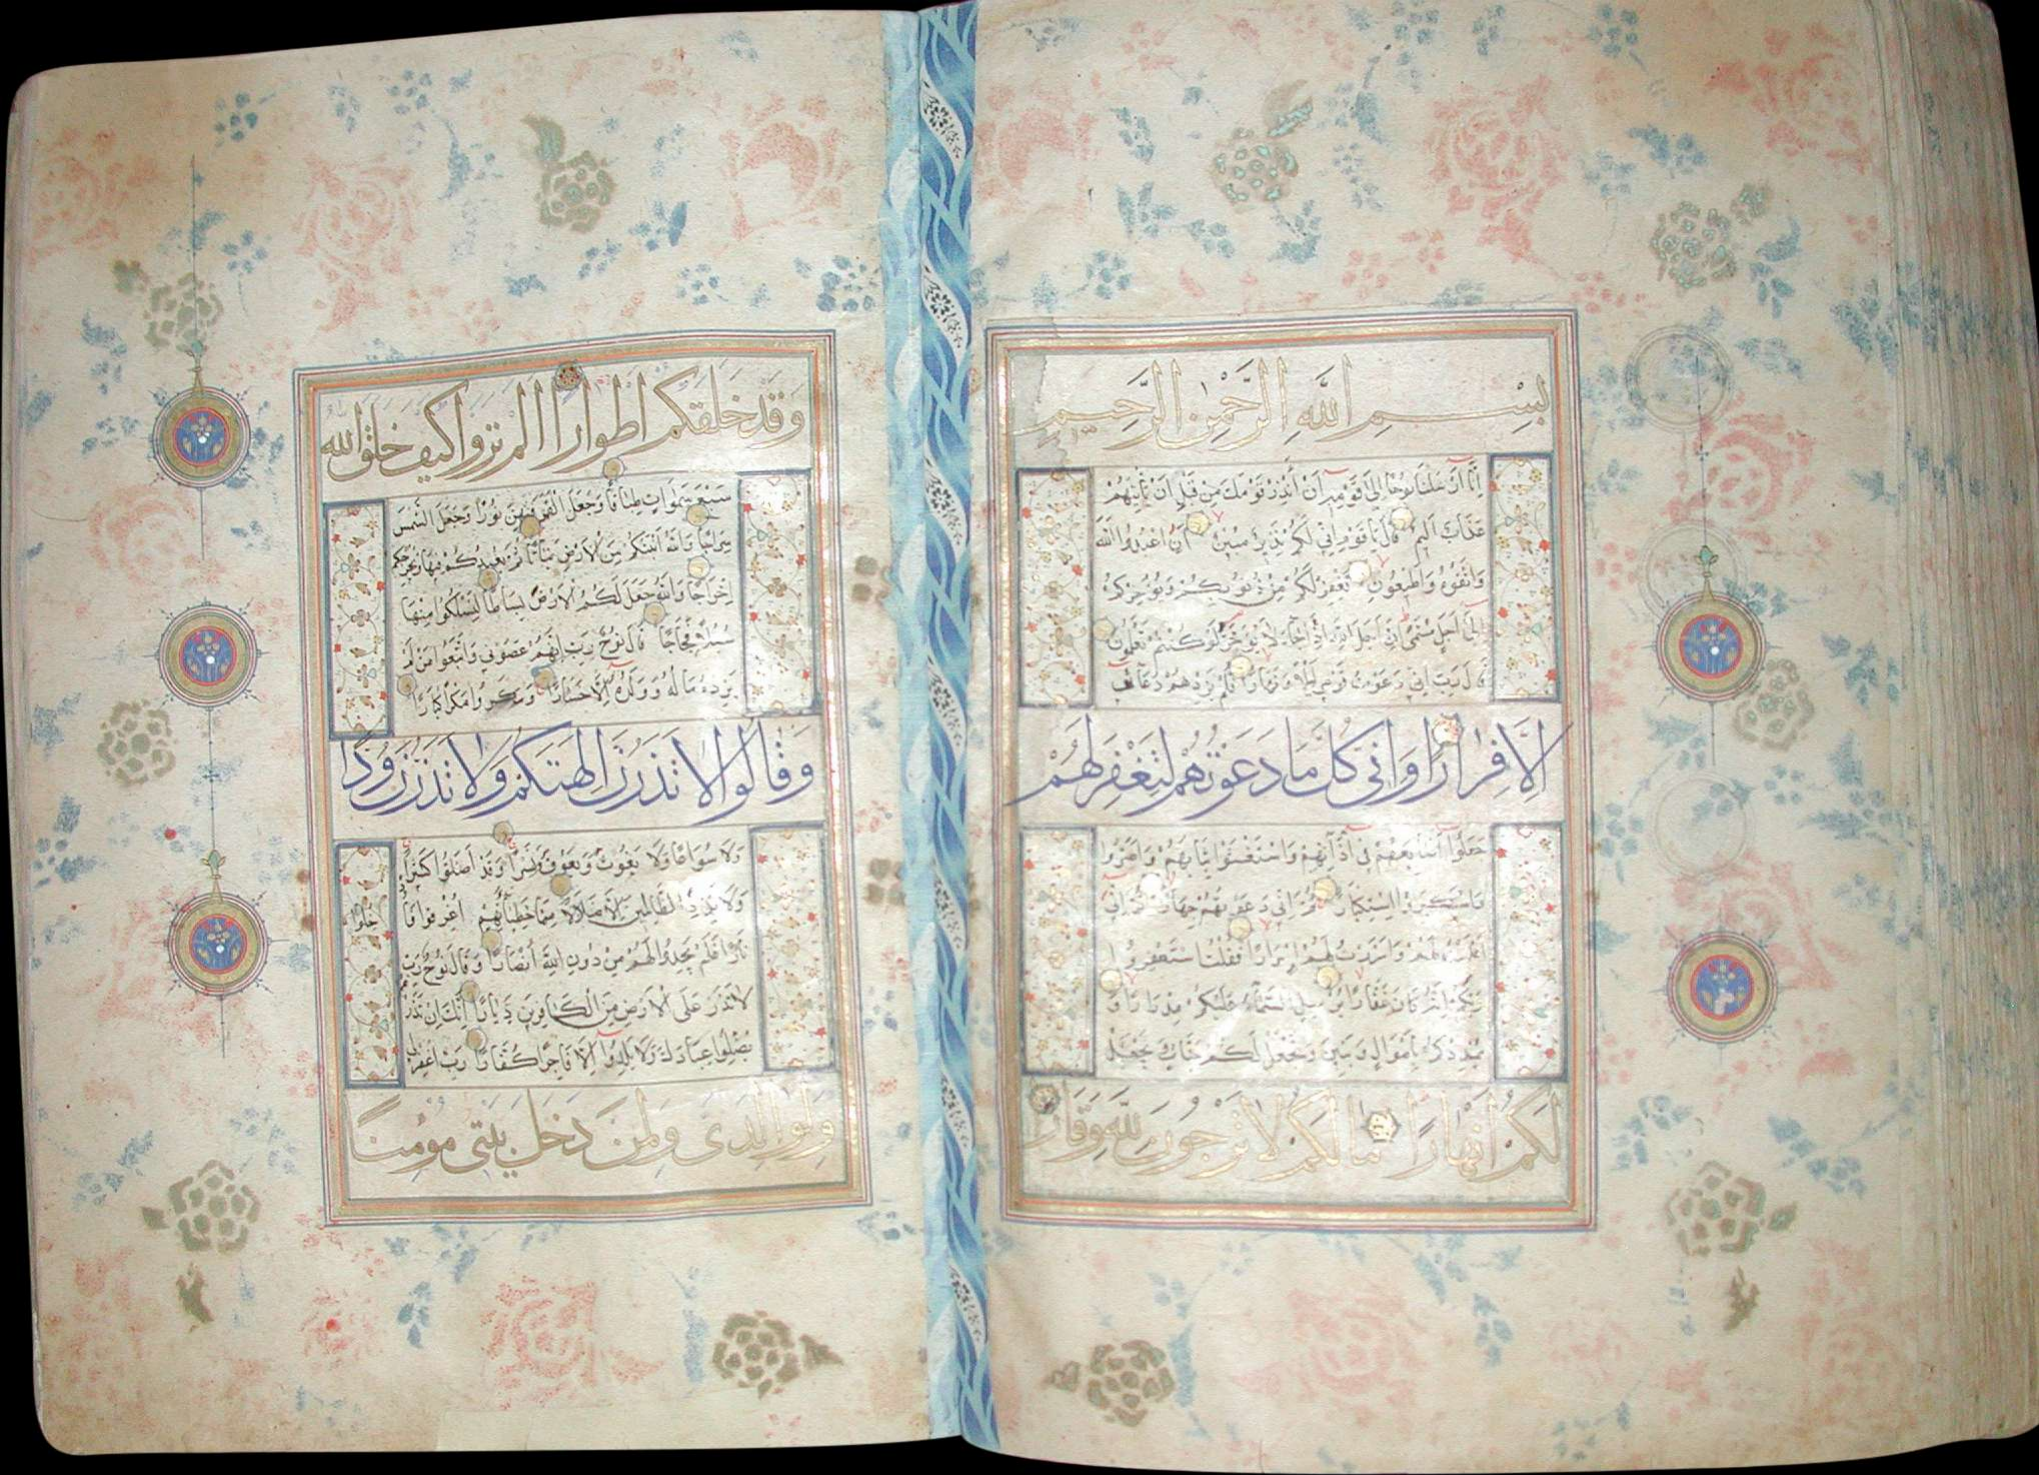 بِسْمِ اللَّهِ الرَّحْمٰنِ الرَّحِيمِ
اِنَّا اَرْسَلْنَا نُوحًا اِلٰى قَوْمِهِ اَنْ اَنْذِرْ قَوْمَكَ مِنْ قَبْلِ اَنْ يَأْتِيَهُمْ
عَذَابٌ اَلِيمٌ قَالَ يَا قَوْمِ اِنِّي لَكُمْ نَذِيرٌ مُبِينٌ اَنِ اعْبُدُوا اللّٰهَ
وَاتَّقُوهُ وَاَطِيعُونِ يَغْفِرْ لَكُمْ مِنْ ذُنُوبِكُمْ وَيُؤَخِّرْكُمْ
اِلٰى اَجَلٍ مُسَمًّى اِنَّ اَجَلَ اللّٰهِ اِذَا جَاءَ لَا يُؤَخَّرُ لَوْ كُنْتُمْ تَعْلَمُونَ
قَالَ رَبِّ اِنِّي دَعَوْتُ قَوْمِي لَيْلًا وَنَهَارًا فَلَمْ يَزِدْهُمْ دُعَائِي
اِلَّا فِرَارًا وَاِنِّي كُلَّمَا دَعَوْتُهُمْ لِتَغْفِرَ لَهُمْ
جَعَلُوا اَصَابِعَهُمْ فِي اٰذَانِهِمْ وَاسْتَغْشَوْا ثِيَابَهُمْ وَاَصَرُّوا
وَاسْتَكْبَرُوا اسْتِكْبَارًا ثُمَّ اِنِّي دَعَوْتُهُمْ جِهَارًا ثُمَّ اِنِّي
اَعْلَنْتُ لَهُمْ وَاَسْرَرْتُ لَهُمْ اِسْرَارًا فَقُلْتُ اسْتَغْفِرُوا
رَبَّكُمْ اِنَّهُ كَانَ غَفَّارًا يُرْسِلِ السَّمَاءَ عَلَيْكُمْ مِدْرَارًا وَ
يُمْدِدْكُمْ بِاَمْوَالٍ وَبَنِينَ وَيَجْعَلْ لَكُمْ جَنَّاتٍ وَيَجْعَلْ
لَكُمْ اَنْهَارًا مَا لَكُمْ لَا تَرْجُونَ لِلّٰهِ وَقَارًا
وَقَدْ خَلَقَكُمْ اَطْوَارًا اَلَمْ تَرَوْا كَيْفَ خَلَقَ اللّٰهُ
سَبْعَ سَمٰوَاتٍ طِبَاقًا وَجَعَلَ الْقَمَرَ فِيهِنَّ نُورًا وَجَعَلَ الشَّمْسَ
سِرَاجًا وَاللّٰهُ اَنْبَتَكُمْ مِنَ الْاَرْضِ نَبَاتًا ثُمَّ يُعِيدُكُمْ فِيهَا وَيُخْرِجُكُمْ
اِخْرَاجًا وَاللّٰهُ جَعَلَ لَكُمُ الْاَرْضَ بِسَاطًا لِتَسْلُكُوا مِنْهَا
سُبُلًا فِجَاجًا قَالَ نُوحٌ رَبِّ اِنَّهُمْ عَصَوْنِي وَاتَّبَعُوا مَنْ لَمْ
يَزِدْهُ مَالُهُ وَوَلَدُهُ اِلَّا خَسَارًا وَمَكَرُوا مَكْرًا كُبَّارًا
وَقَالُوا لَا تَذَرُنَّ اٰلِهَتَكُمْ وَلَا تَذَرُنَّ وَدًّا
وَلَا سُوَاعًا وَلَا يَغُوثَ وَيَعُوقَ وَنَسْرًا وَقَدْ اَضَلُّوا كَثِيرًا
وَلَا تَزِدِ الظَّالِمِينَ اِلَّا ضَلَالًا مِمَّا خَطِيئَاتِهِمْ اُغْرِقُوا فَا
دْخِلُوا
نَارًا فَلَمْ يَجِدُوا لَهُمْ مِنْ دُونِ اللّٰهِ اَنْصَارًا وَقَالَ نُوحٌ رَبِّ
لَا تَذَرْ عَلَى الْاَرْضِ مِنَ الْكَافِرِينَ دَيَّارًا اِنَّكَ اِنْ تَذَرْهُمْ
يُضِلُّوا عِبَادَكَ وَلَا يَلِدُوا اِلَّا فَاجِرًا كَفَّارًا رَبِّ اغْفِرْ لِي
وَلِوَالِدَيَّ وَلِمَنْ دَخَلَ بَيْتِيَ مُؤْمِنًا